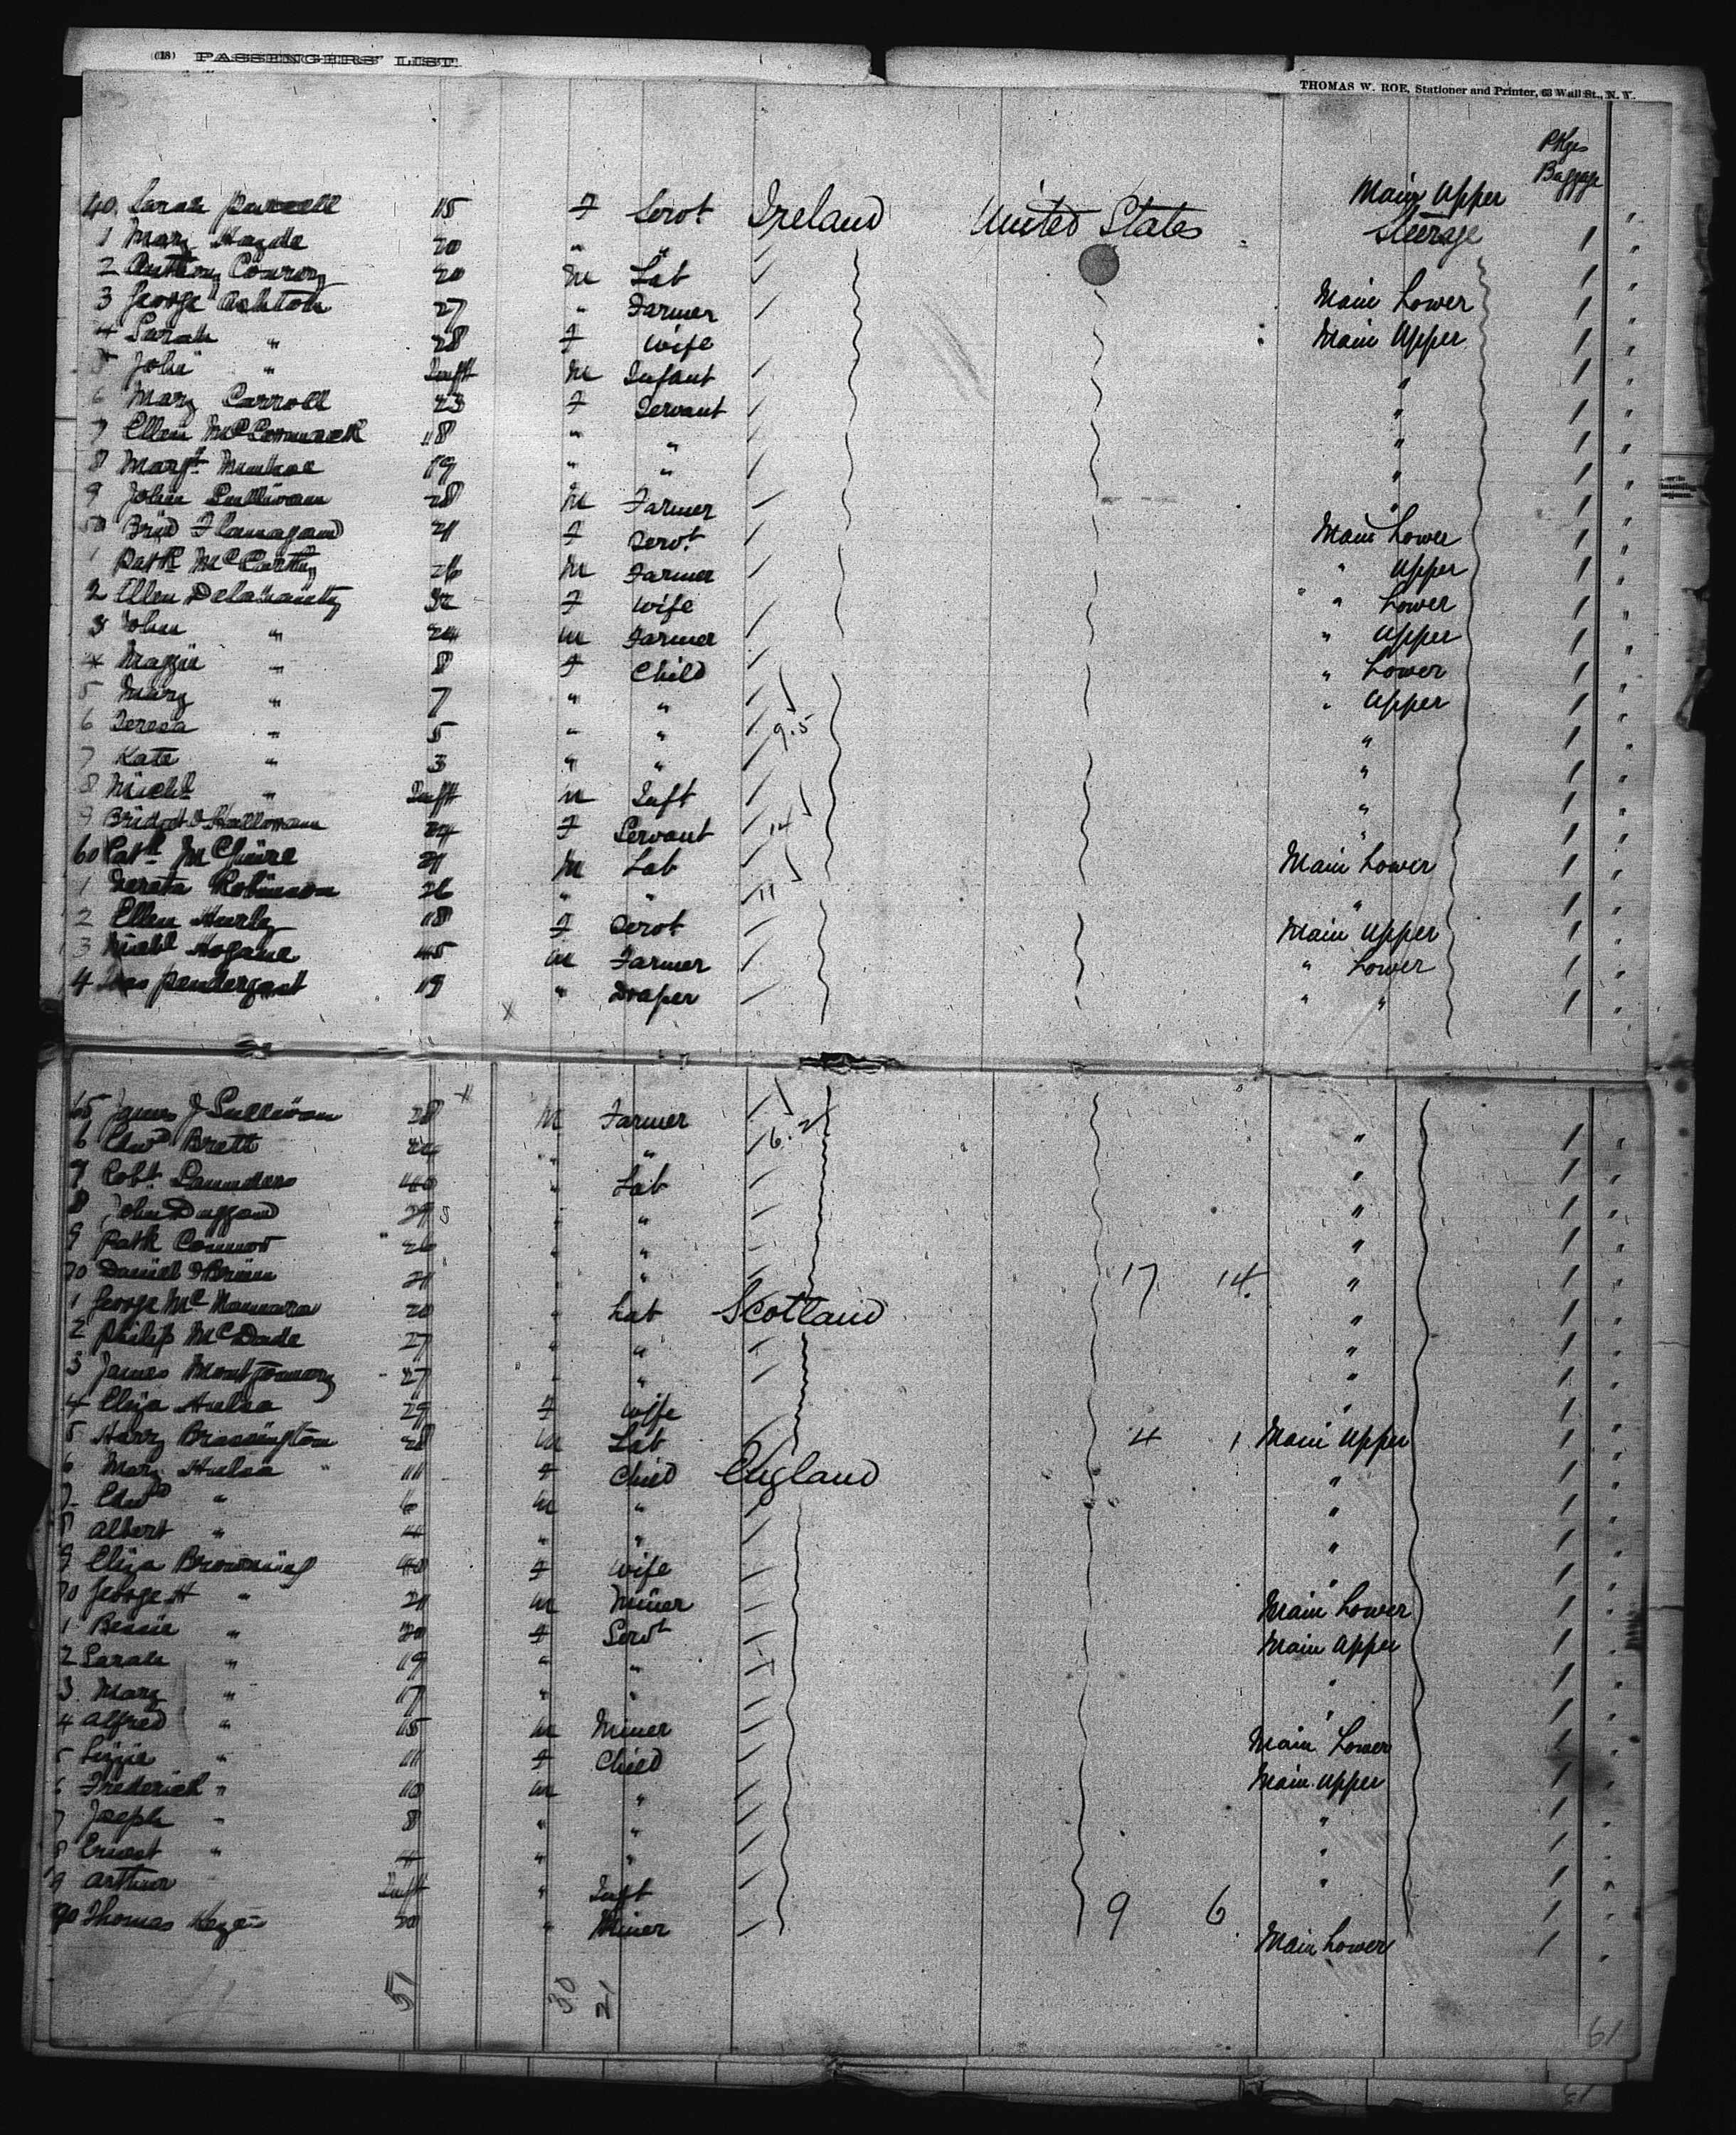 (18) PASSENGERS' LIST.
THOMAS W. ROE, Stationer and Printer, 63 Wall St., N. Y.
Pkges
Baggage
40. Sarah Purcell 15 F Servt Ireland United States Main Upper Steerage 1 "
1 Mary 20 " " 1 "
2 Anthony Conroy 20 M Lab Main Lower 1 "
3 George Ashton 27 " Farmer Main Upper 1 "
4 Sarah " 28 F Wife " 1 "
5 John " Inft M Infant " 1 "
6 Mary Carroll 23 F Servant " 1 "
7 Ellen McCormack 18 " " " 1 "
8 Margt 19 " " " 1 "
9 John Sullivan 28 M Farmer Main Lower 1 "
50 Brid Flanagan 21 F Servt " Upper 1 "
1 Patk McCarthy 26 M Farmer " Lower 1 "
2 Ellen Delahanty 32 F Wife " Upper 1 "
3 John " M Farmer " Lower 1 "
4 Maggie " 8 F Child " Upper 1 "
5 Mary " 7 " " " 1 "
6 Teresa " 5 " " 9.5 " 1 "
7 Kate " 3 " " " 1 "
8 Michl " Inft M Inft " 1 "
9 Bridgt O'Halloran 24 F Servant 14 1 "
60 Patk McGuire 21 M Lab Main Lower 1 "
1 Robinson 26 " " 11 " 1 "
2 Ellen Hurly 18 F Servt Main Upper 1 "
3 Michl Hogane 45 M Farmer " Lower 1 "
4 Pendergast 19 " Draper " " 1 "
65 James J Sullivan 28 M Farmer " 1 "
6 Edwd Brett 24 " " 6.2 " 1 "
7 Robt Saunders 40 " Lab " 1 "
8 John Duggan 29 " " " 1 "
9 Patk Connor 26 " " " 1 "
70 Daniel O'Brien 21 " " 17 14 " 1 "
1 George McNamara 20 " Lab Scotland " 1 "
2 Philip McDade 27 " " " 1 "
3 James Montgomery 27 " " " 1 "
4 Eliza Hulsa 29 F Wife 1 "
5 Harry Brassington 28 M Lab 4 1 Main Upper 1 "
6 Mary Hulsa 11 F Child England " 1 "
7 Edwd " 6 M " " 1 "
8 Albert " 4 " " " 1 "
9 Eliza Browning 40 F Wife " 1 "
70 George H " 21 M Miner Main Lower 1 "
1 Bessie " 20 F Servt Main Upper 1 "
2 Sarah " 19 " " " 1 "
3 Mary " 17 " " " 1 "
4 Alfred " 15 M Miner Main Lower 1 "
5 Lizzie " 11 F Child Main Upper 1 "
6 Frederick " 10 M " " 1 "
7 Joseph " 8 " " " 1 "
8 Ernest " 4 " " " 1 "
9 Arthur Inft " Inft 1 "
90 Thomas 20 " Miner 9 6 Main Lower 1 "
51 30 21
61